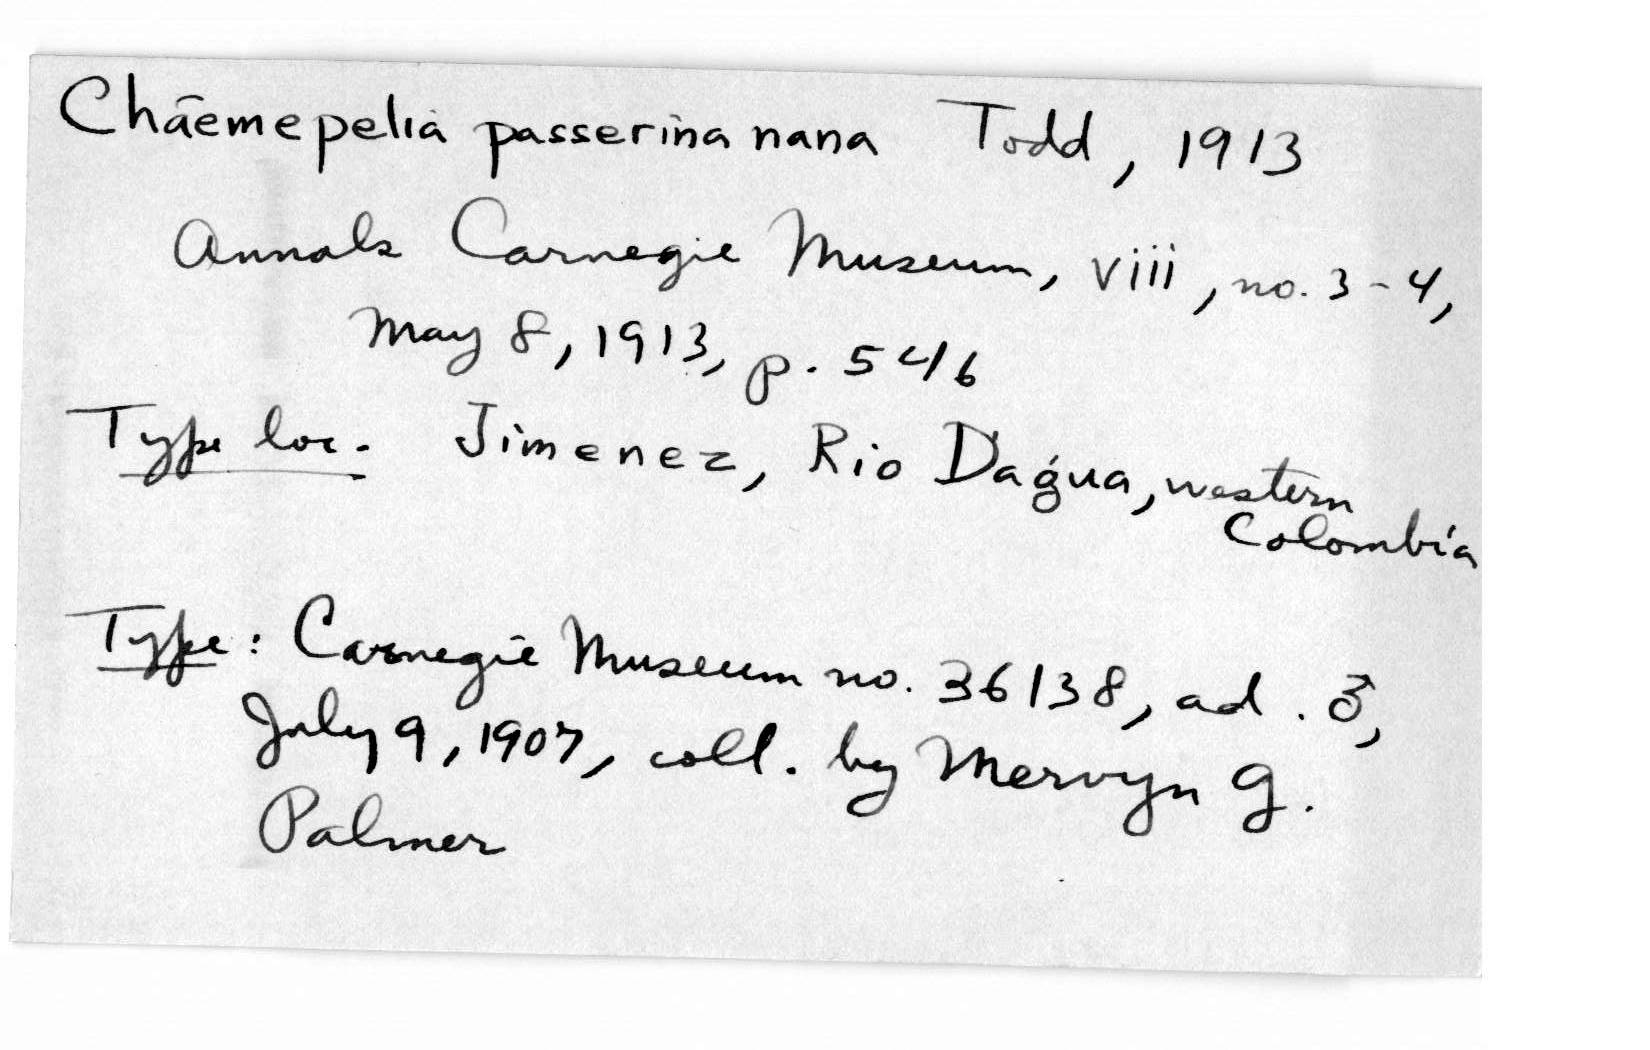 Chaemepelia passerina nana Todd, 1913
Annals Carnegie Museum, viii, no. 3-4,
May 8, 1913, p. 546
Type loc. Jimenez, Rio Dagua, western
Colombia
Type: Carnegie Museum no. 36138, ad. ♂,
July 9, 1907, coll. by Mervyn G.
Palmer